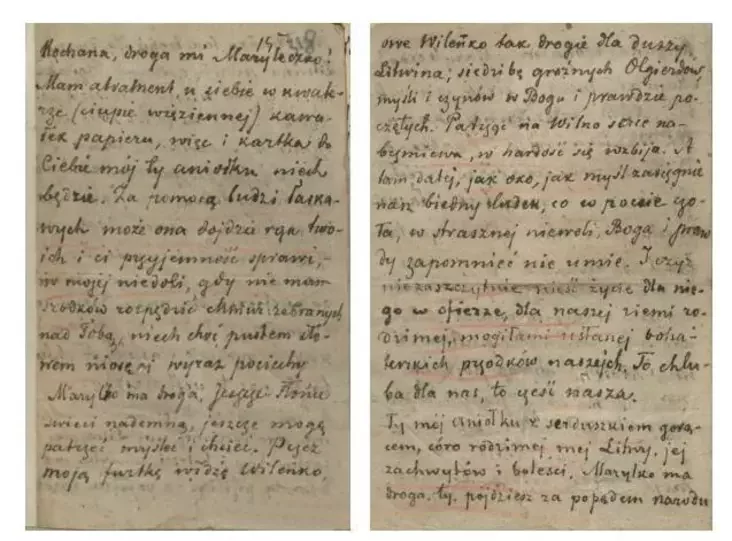 Kochana, droga mi Maryleczko!
Mam atrament, u siebie w kwate-
rze (ciupie więziennej) kawa-
łek papieru, więc i kartka do
Ciebie mój ty aniołku niech
będzie. Za pomocą ludzi łaska-
wych może ona dojdzie rąk two-
ich i ci przyjemność sprawi,
w mojej niedoli, gdy nie mam
środków rozpędzić chmur zebranych
nad Tobą, niech choć pustem sło-
wem niosę ci wyraz pociechy
Marylko ma droga, jeszcze słońce
świeci nademną, jeszcze mogę
patrzeć myśleć i chcieć. Przez
moją furtkę widzę Wileńko,
owe Wileńko tak drogie dla duszy
Litwina; siedzibę groźnych Olgierdów,
myśli i czynów w Bogu i prawdzie po-
czętych. Patrząc na Wilno serce na-
brzmiewa, w hardość się wzbija. A
tam dalej, jak oko, jak myśl zasięgnie
nasz biedny ludek, co w pocie czo-
ła, w strasznej niewoli, Boga i praw
dy zapomnieć nie umie. I czyż
niezaszczytnie nieść życie dla nie-
go w ofierze, dla naszej ziemi ro-
dzimej, mogiłami usłanej boha-
terskich przodków naszych. To chlu-
ba dla nas, to cześć nasza.
Ty mój aniołku z serduszkiem gorą-
cem, córo rodzimej mej Litwy, jej
zachwytów i boleści, Marylko ma
droga, ty, pójdziesz za popędem narodu